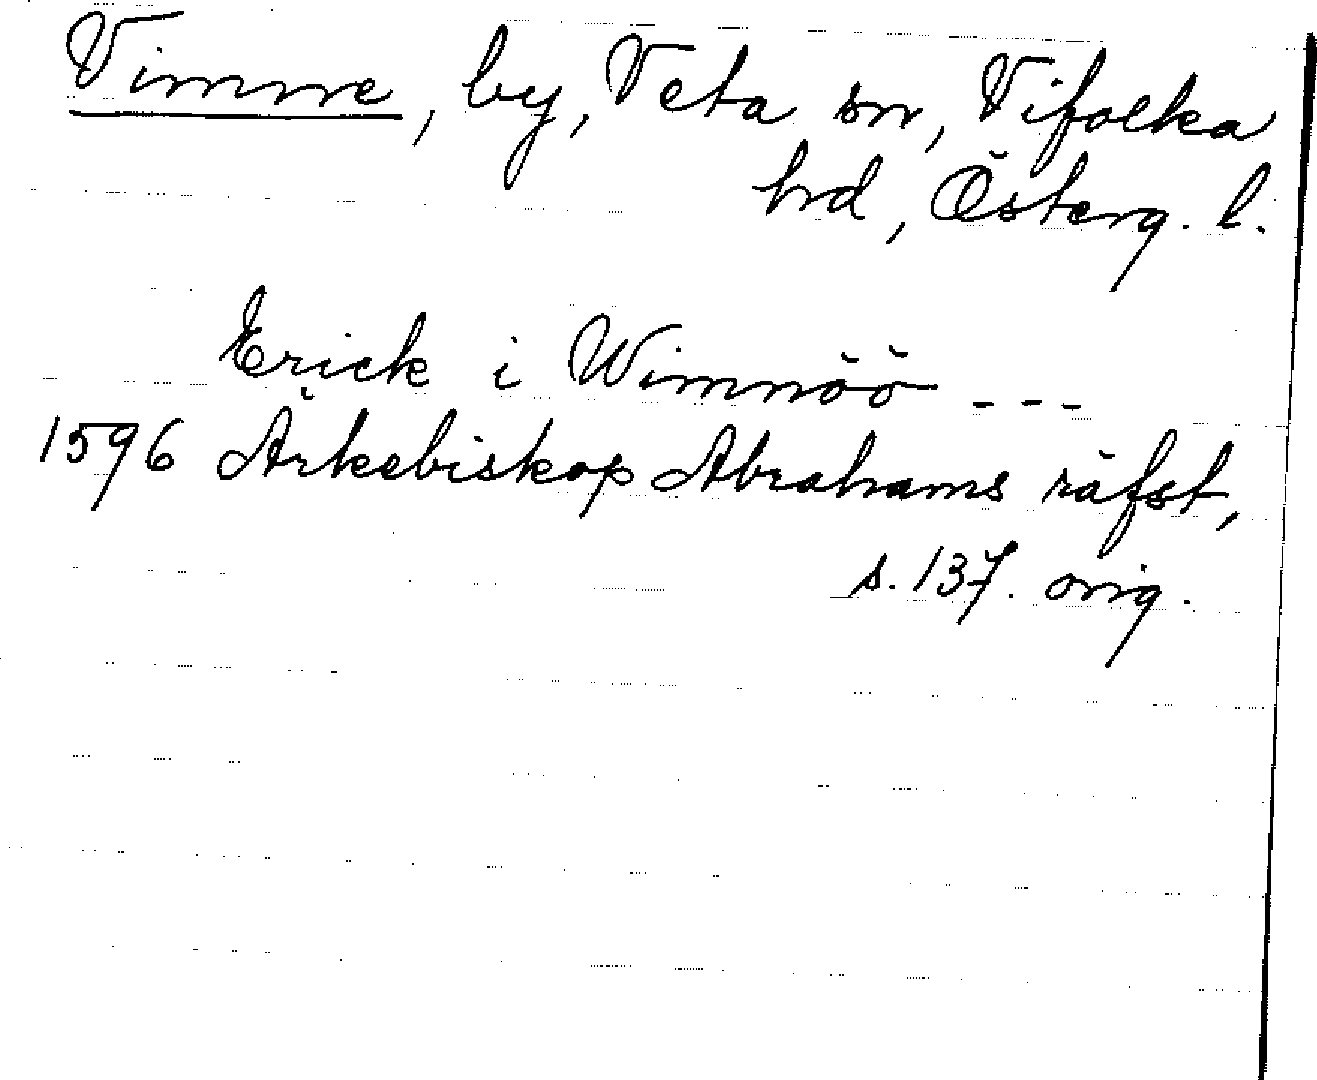 Vimne, by, Veta sn, Vifolka
hd, Österg. l.
Erick i Wimnöö ---
1596 Ärkebiskop Abrahams räfst,
s. 137. orig.